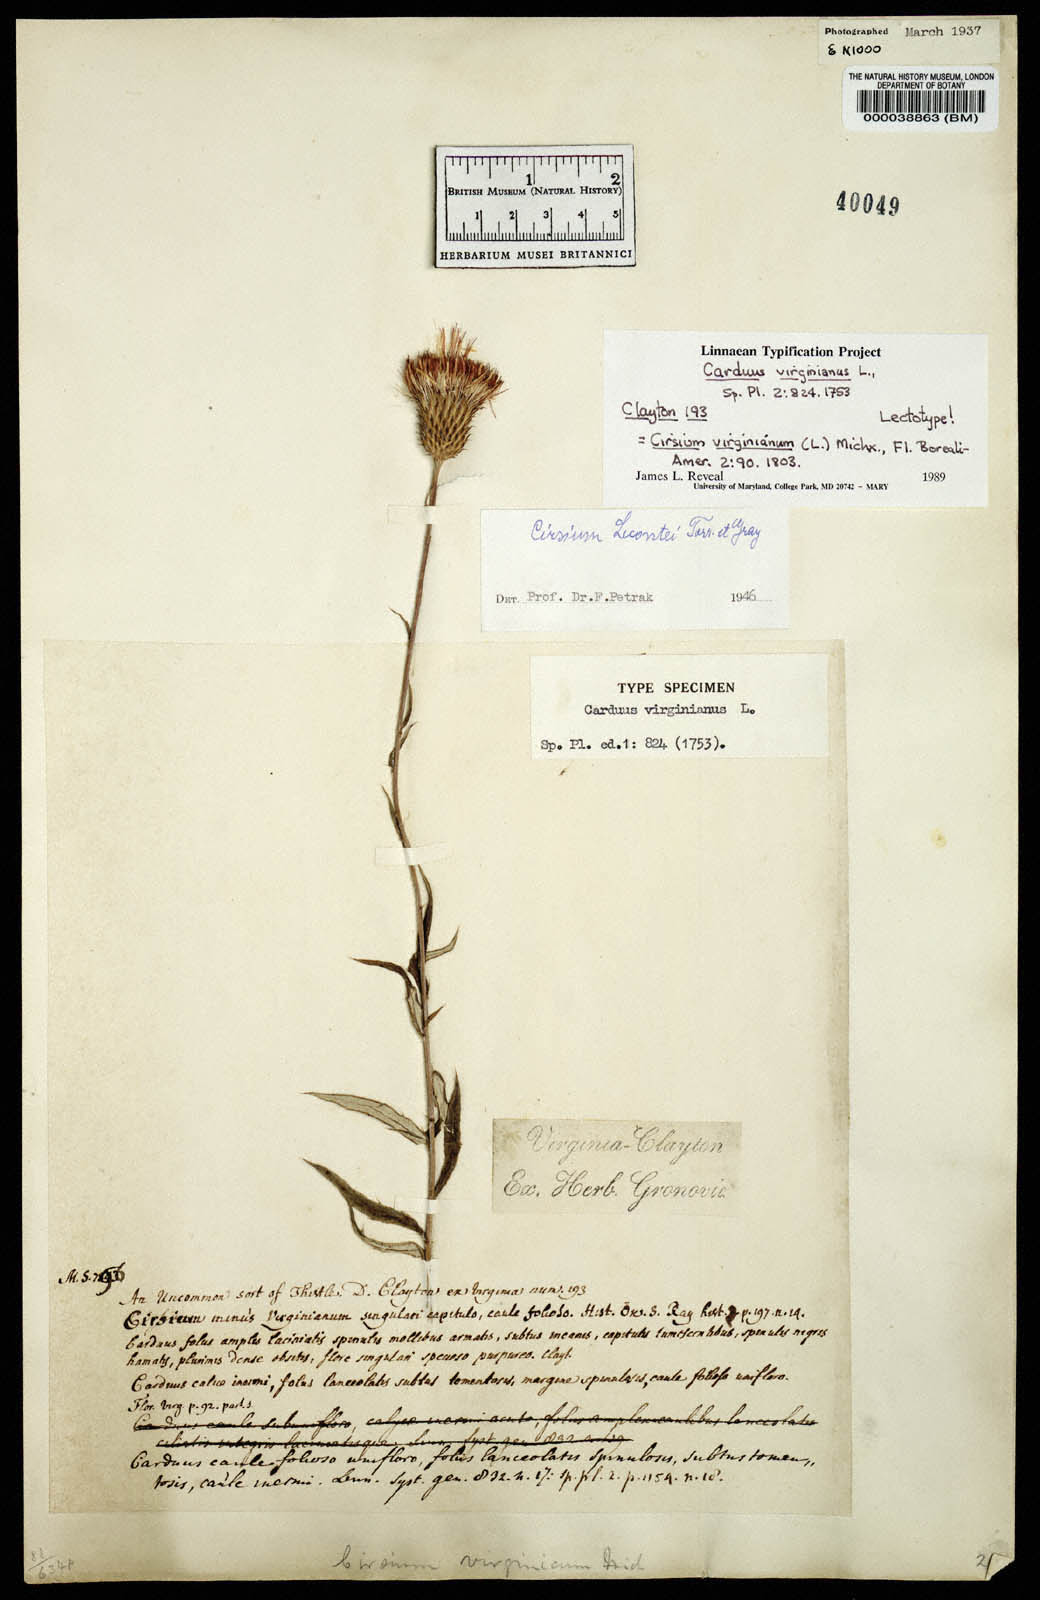 Photographed March 1937
& N1000
THE NATURAL HISTORY MUSEUM, LONDON
DEPARTMENT OF BOTANY
000038863 (BM)
40049
1 2
BRITISH MUSEUM (NATURAL HISTORY)
1 2 3 4 5
HERBARIUM MUSEI BRITANNICI
Linnaean Typification Project
Carduus virginianus L.,
Sp. Pl. 2:824. 1753
Clayton 193 Lectotype!
= Cirsium virginianum (L.) Michx., Fl. Boreali-
Amer. 2:90. 1803.
James L. Reveal 1989
University of Maryland, College Park, MD 20742 – MARY
Cirsium Lecontei Torr. et Gray
DET. Prof. Dr.F.Petrak 1946
TYPE SPECIMEN
Carduus virginianus L.
Sp. Pl. ed.1: 824 (1753).
Virginia-Clayton
Ex. Herb. Gronovii
M. S.
An Uncommon sort of Thistle. D. Clayton ex Virginia num. 193
Cirsium minus Virginianum singulari capitulo, caule folioso. Hist. Ox. S. Ray hist. 3 p. 197. n. 14.
Carduus foliis amplis laciniatis spinulis mollibus armatis, subtus incanis, capitulis tumescentibus, spinulis nigris
hamatis, plurimis dense obsitis, flore singulari specioso purpureo. Clayt.
Carduus calice inermi, foliis lanceolatis subtus tomentosis, margine spinulosis, caule folioso unifloro.
Flor. Virg. p. 92. part. 1.
Carduus caule subunifloro, calyce inermi acuto, foliis amplexicaulibus lanceolatis
ciliatis integris laciniatisque. Linn. Syst. gen. 832
Carduus caule folioso unifloro, foliis lanceolatis spinulosis, subtus tomen„
tosis, caule inermi. Linn. Syst. gen. 832. n. 17: sp. pl. 2. p. 1154. n. 18.
Cirsium virginicum